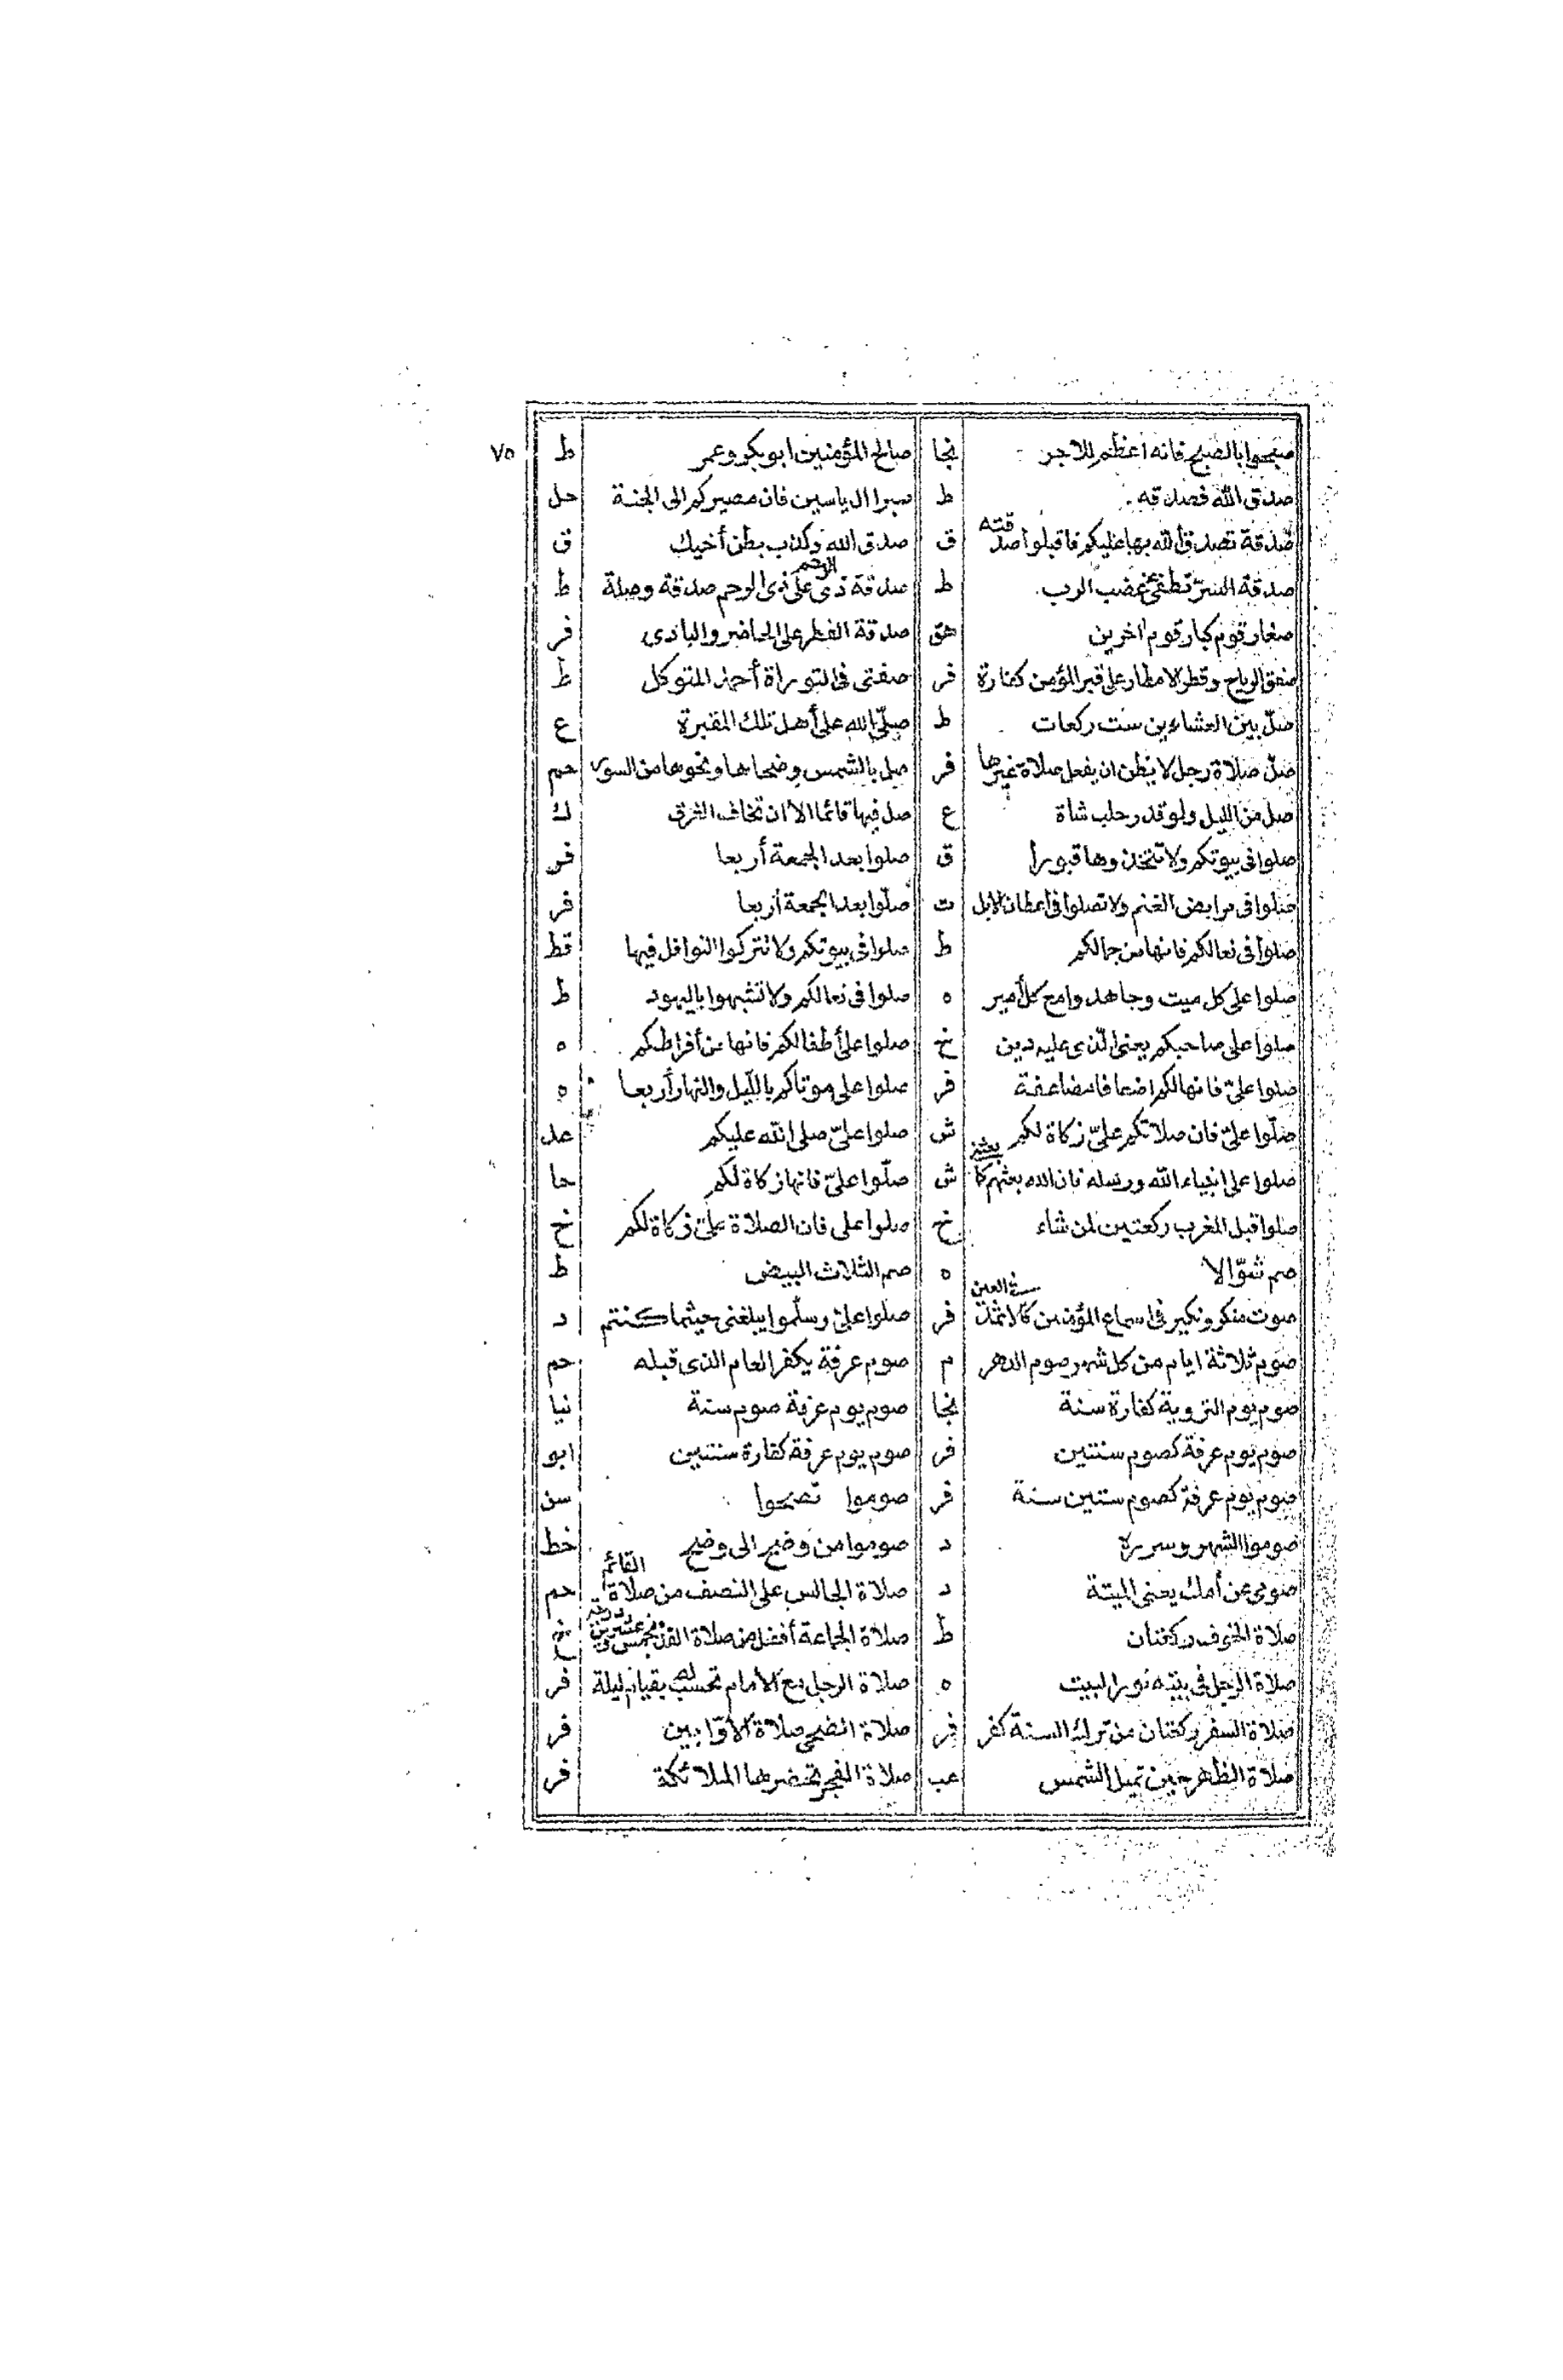 صبحوا بالصبح فانه اعظم للاجر نجا صالح المؤمنين ابو بكر وعمر ط ٧٥
صدق الله فصدقه ط صبرا ال ياسين فان مصيركم الى الجنة حل
صدقة تصدق الله بها عليكم فاقبلوا صدقته ق صدق الله وكذب بطن أخيك ق
صدقة السرّ تطفئ غضب الرب ط صدقة ذى الرحم على ذى الرحم صدقة وصلة ط
صغار قوم كبار قوم اخرين هق صدقة الفطر على الحاضر والبادى فر
صفق الرياح وقطر الامطار على قبر المؤمن كفارة فر صفتى فى التوراة أحمد المتوكل ط
صلّ بين العشاءين ست ركعات ط صلّى الله على أهل تلك المقبرة ع
صلّ صلاة رجل لا يظن ان يفعل صلاة غيرها فر صل بالشمس وضحاها ونحوها من السور حم
صل من الليل ولو قدر حلب شاة ع صل فيها قائما الا ان تخاف الغرق ك
صلوا فى بيوتكم ولا تتخذوها قبورا ق صلوا بعد الجمعة أربعا فر
صلوا فى مرابض الغنم ولا تصلوا فى اعطان الابل ت صلّوا بعد الجمعة أربعا فر
صلوا فى نعالكم فانها من جمالكم ط صلوا فى بيوتكم ولا تتركوا النوافل فيها قط
صلوا على كل ميت وجاهدوا مع كل أمير ه صلوا فى نعالكم ولا تشبهوا باليهود ط
صلوا على صاحبكم يعنى الّذى عليه دين خ صلوا على أطفالكم فانها من أفراطكم ه
صلوا علىّ فانها لكم اضعافا مضاعفة فر صلوا على موتاكم بالليل والنهار أربعا ه
صلّوا علىّ فان صلاتكم علىّ زكاة لكم ش صلوا علىّ صلى الله عليكم عد
صلوا على انبياء الله ورسله فان الله بعثهم كما بعثنى ش صلّوا علىّ فانها زكاة لكم حا
صلوا قبل المغرب ركعتين لمن شاء خ صلوا على فان الصلاة علىّ زكاة لكم خ
صم شوّالا ه صم الثلاث البيض ط
صوت منكر ونكير فى اسماع المؤمنين كالاثمد فى العين فر صلوا علىّ وسلّموا يبلغنى حيثما كنتم د
صوم ثلاثة ايام من كل شهر صوم الدهر م صوم عرفة يكفر العام الذى قبله حم
صوم يوم التروية كفارة سنة نجا صوم يوم عرفة صوم سنة نيا
صوم يوم عرفة كصوم سنتين فر صوم يوم عرفة كفارة سنتين ابو
صوم يوم عرفة كصوم ستين سنة فر صوموا تصحوا سن
صوموا الشهر وسرره د صوموا من وضح الى وضح خط
صومى عن أمك يعنى الميتة د صلاة الجالس على النصف من صلاة القائم حم
صلاة الخوف ركعتان ط صلاة الجماعة أفضل من صلاة الفذ بخمس وعشرين درجة خ
صلاة الرجل فى بيته نور البيت ه صلاة الرجل مع الامام تحسب له بقيام ليلة فر
صلاة السفر ركعتان من ترك السنة كفر فر صلاة الضحى صلاة الاوّابين فر
صلاة الظهر حين تميل الشمس عب صلاة الفجر تحضرها الملائكة فر